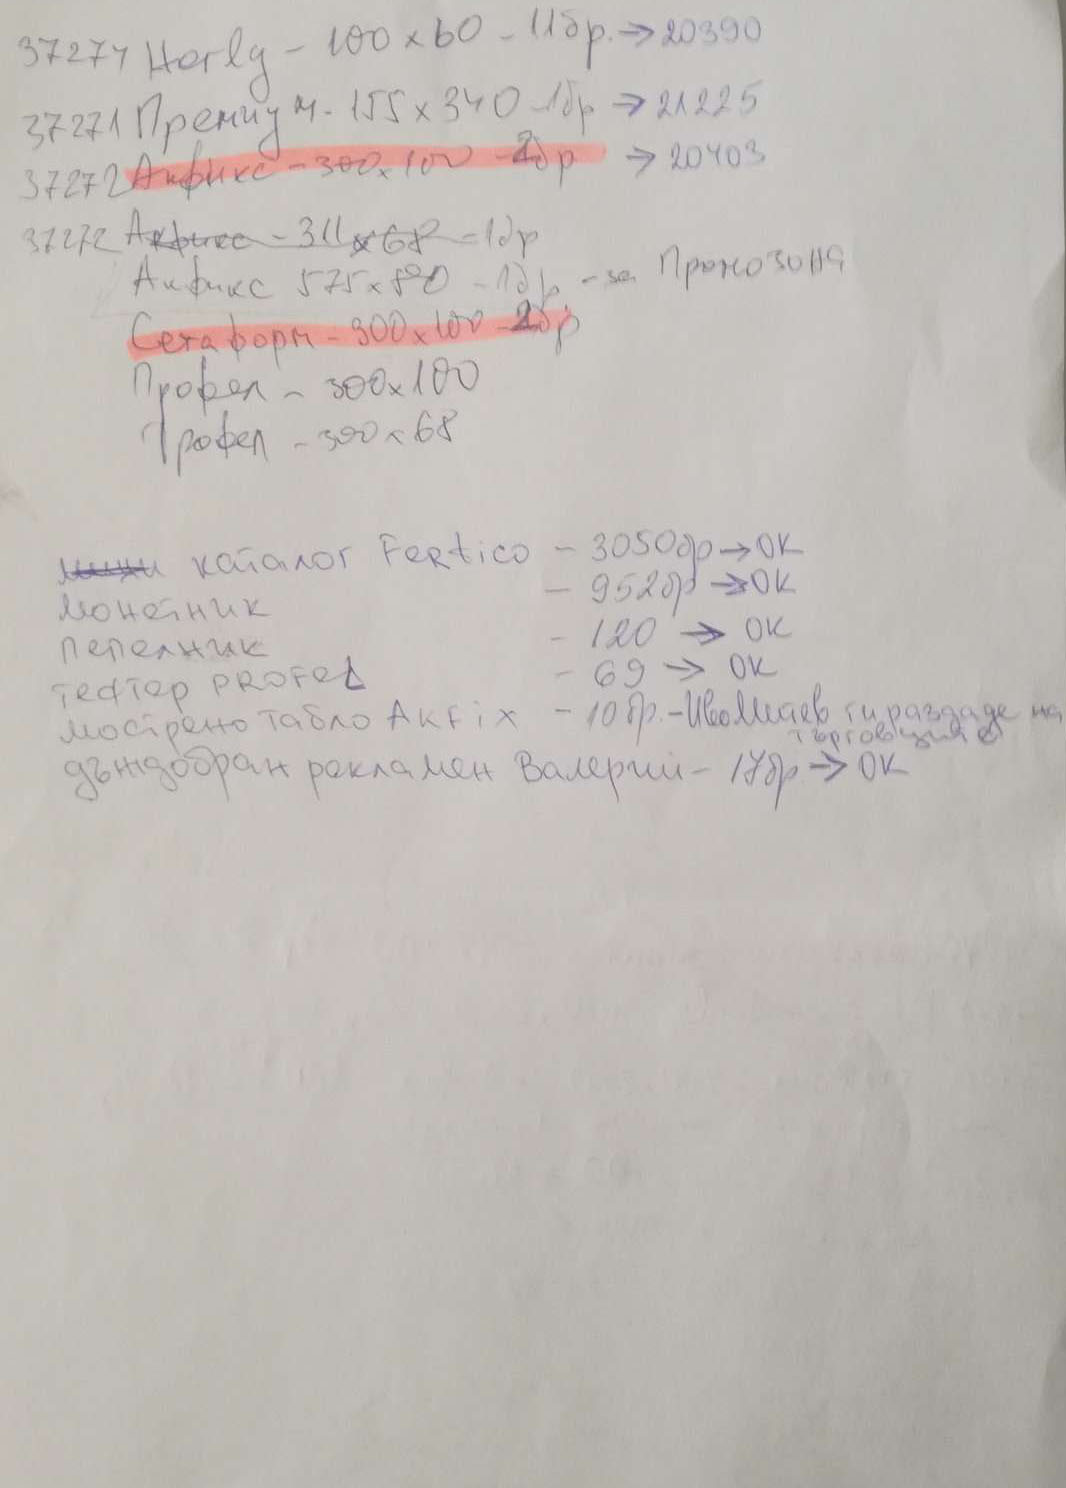 37274 Herly - 100 x 60 - 11бр. → 20390
37271 Премиум - 155 x 340 - 1бр → 21225
37272 Акфикс - 300 x 100 - 2бр → 20403
37272 Акфикс - 311 x 68 - 1бр
Акфикс 575 x 80 - 1бр - за Промозоня
Сегаформ - 300 x 100 - 2бр
Профел - 300 x 100
Профел - 300 x 68
каталог Fertico - 3050бр → OK
монетник - 952бр → OK
пепелник - 120 → OK
тефтер PROFEL - 69 → OK
мострено табло AKFix - 10бр. - Иво ги раздаде на
дъждобран рекламен Валерий - 17бр → OK